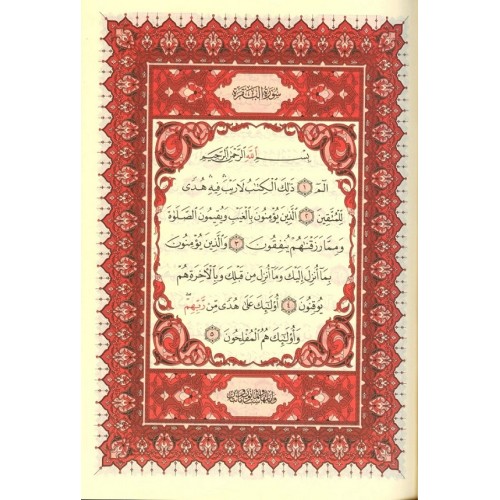 سُورَةُ الْبَقَرَةِ
بِسْمِ اللَّهِ الرَّحْمَنِ الرَّحِيمِ
الم ١ ذَلِكَ الْكِتَابُ لَا رَيْبَ فِيهِ هُدًى
لِلْمُتَّقِينَ ٢ الَّذِينَ يُؤْمِنُونَ بِالْغَيْبِ وَيُقِيمُونَ الصَّلَوٰةَ
وَمِمَّا رَزَقْنَاهُمْ يُنْفِقُونَ ٣ وَالَّذِينَ يُؤْمِنُونَ
بِمَا أُنْزِلَ إِلَيْكَ وَمَا أُنْزِلَ مِنْ قَبْلِكَ وَبِالْآخِرَةِ هُمْ
يُوقِنُونَ ٤ أُولَٰئِكَ عَلَىٰ هُدًى مِنْ رَبِّهِمْ
وَأُولَٰئِكَ هُمُ الْمُفْلِحُونَ ٥